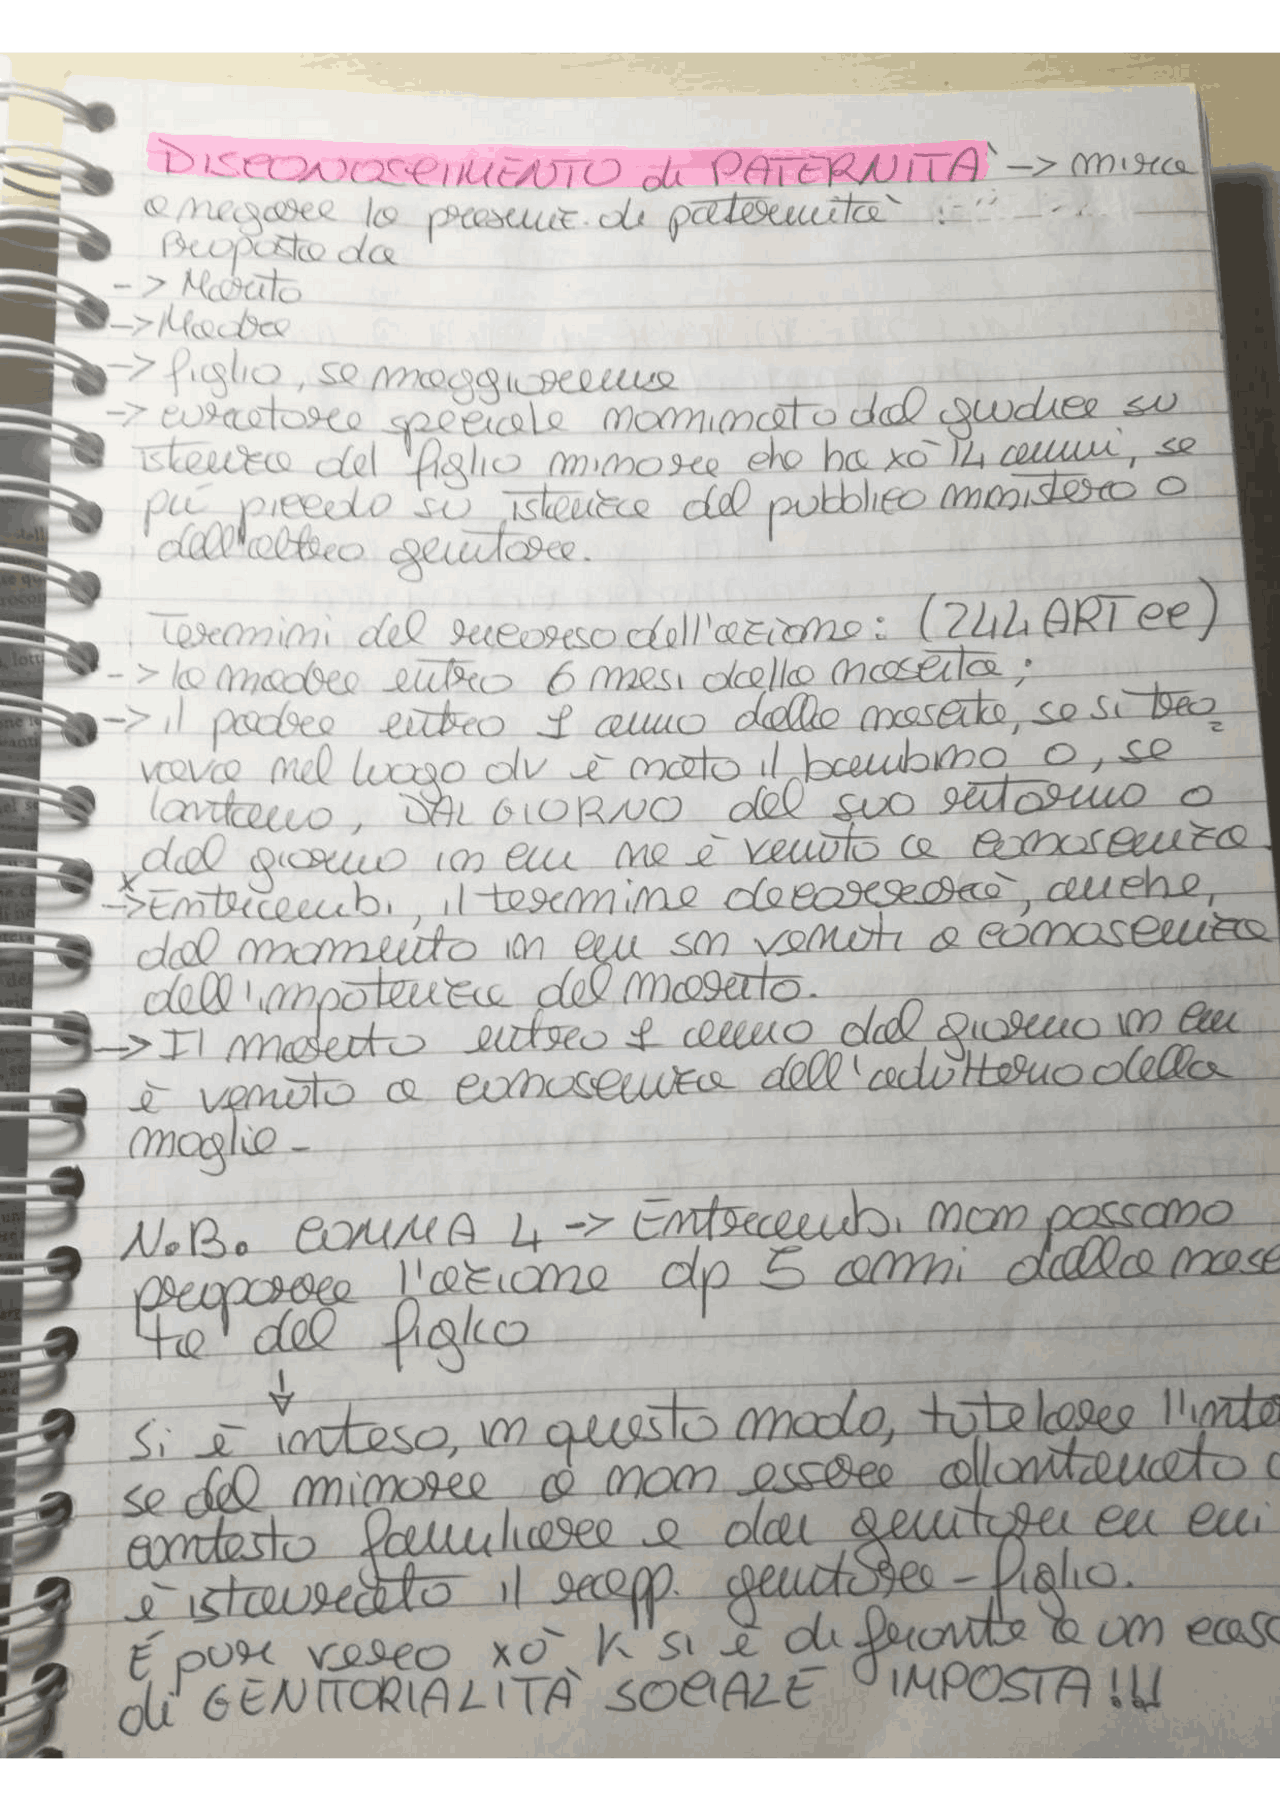 DISCONOSCIMENTO di PATERNITÀ -> mira
a negare la presunz. di paternità
Proposta da
-> Marito
-> Madre
-> figlio, se maggiorenne
-> curatore speciale nominato dal giudice su
istanza del figlio minore che ha xò 14 anni, se
più piccolo su istanza del pubblico ministero o
dell'altro genitore.
Termini del ricorso dell'azione: (244 ART cc)
-> la madre entro 6 mesi dalla nascita;
-> il padre entro 1 anno dalla nascita, se si tro
vava nel luogo dv è nato il bambino o, se
lontano, DAL GIORNO del suo ritorno o
dal giorno in cui ne è venuto a conoscenza.
x
-> Entrambi, il termine decorrerà, anche,
dal momento in cui sn venuti a conoscenza
dell'impotenza del marito.
-> Il marito entro 1 anno dal giorno in cui
è venuto a conoscenza dell'adulterio della
moglie -
N.B. COMMA 4 -> Entrambi non possono
proporre l'azione dp 5 anni dalla nasc
ta del figlio
Si è inteso, in questo modo, tutelare l'inte
se del minore a non essere allontanato
contesto familiare e dai genitori cn cui
è istaurato il rapp. genitore - figlio.
È pur vero xò k si è di fronte a un caso
di GENITORIALITÀ SOCIALE IMPOSTA!!!